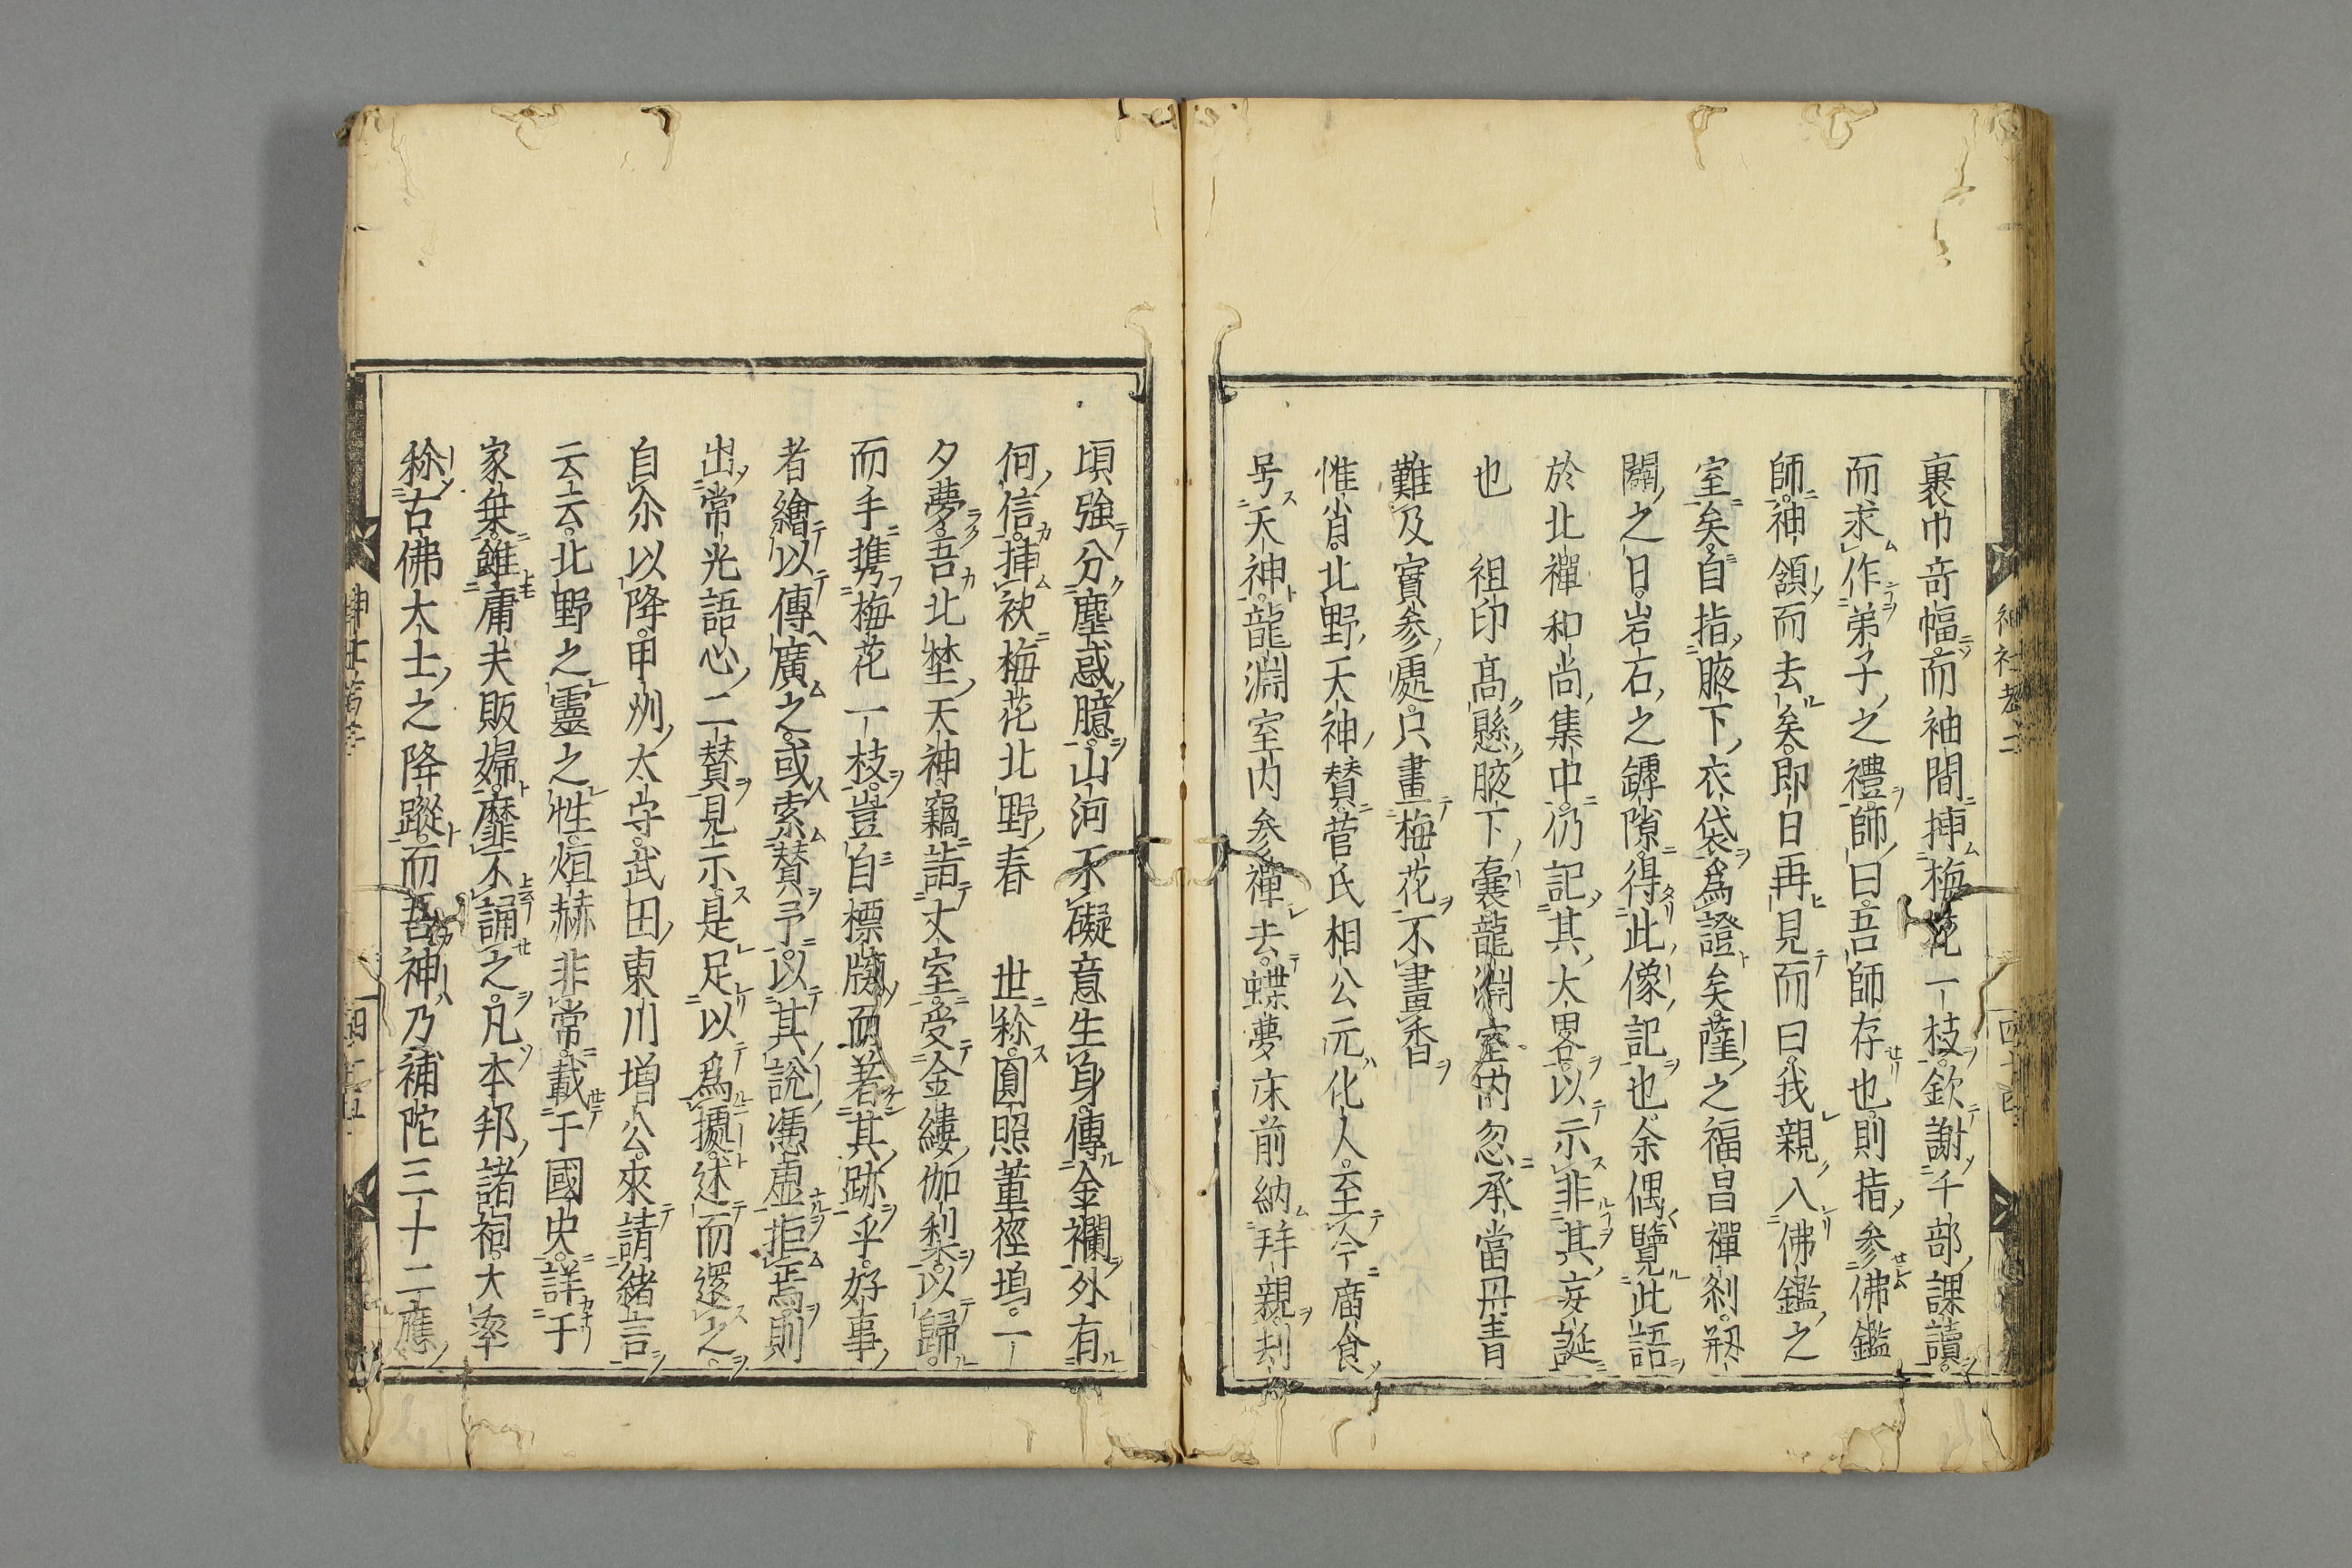 裹巾竒幅而袖間揷梅花一枝欽謝千部課讀
而求作弟子之禮師曰吾師存也則指參佛鑑
師神頷而去矣即日再見而曰我親入佛鑑之
室矣自指腋下衣袋爲證矣薩之福昌禪刹剏
闢之日岩石之罅隙得此像記也余偶覽此語
於北禪和尚集中仍記其大畧以示非其妄誕
也　祖印髙懸腋下囊龍淵室内忽承當丹青
難及實參處只畫梅花不畫香
惟肖北野天神賛菅氏相公元化人至今庿食
号天神龍淵室内參禪去蝶夢床前納拜親刹
頃強分塵惑臆山河不礙意生身傳金襴外有
何信揷袂梅花北野春　世称圓照董徑塢一
夕夢吾北埜天神竊詣丈室受金縷伽梨以歸
而手携梅花一枝豈自標牓而著其跡乎好事
者繪以傳廣之或索賛予以其說憑虛拒焉則
出常光語心二賛見示是足以爲據述而還之
自尒以降甲州太守武田東川増公來請緒言
云云北野之靈之性烜赫非常載于國史詳于
家乗雖庸夫販婦靡不誦之凡本邦諸祠大率
称古佛大士之降蹤而吾神乃補陀三十二應
神社考二
四十四
四十五